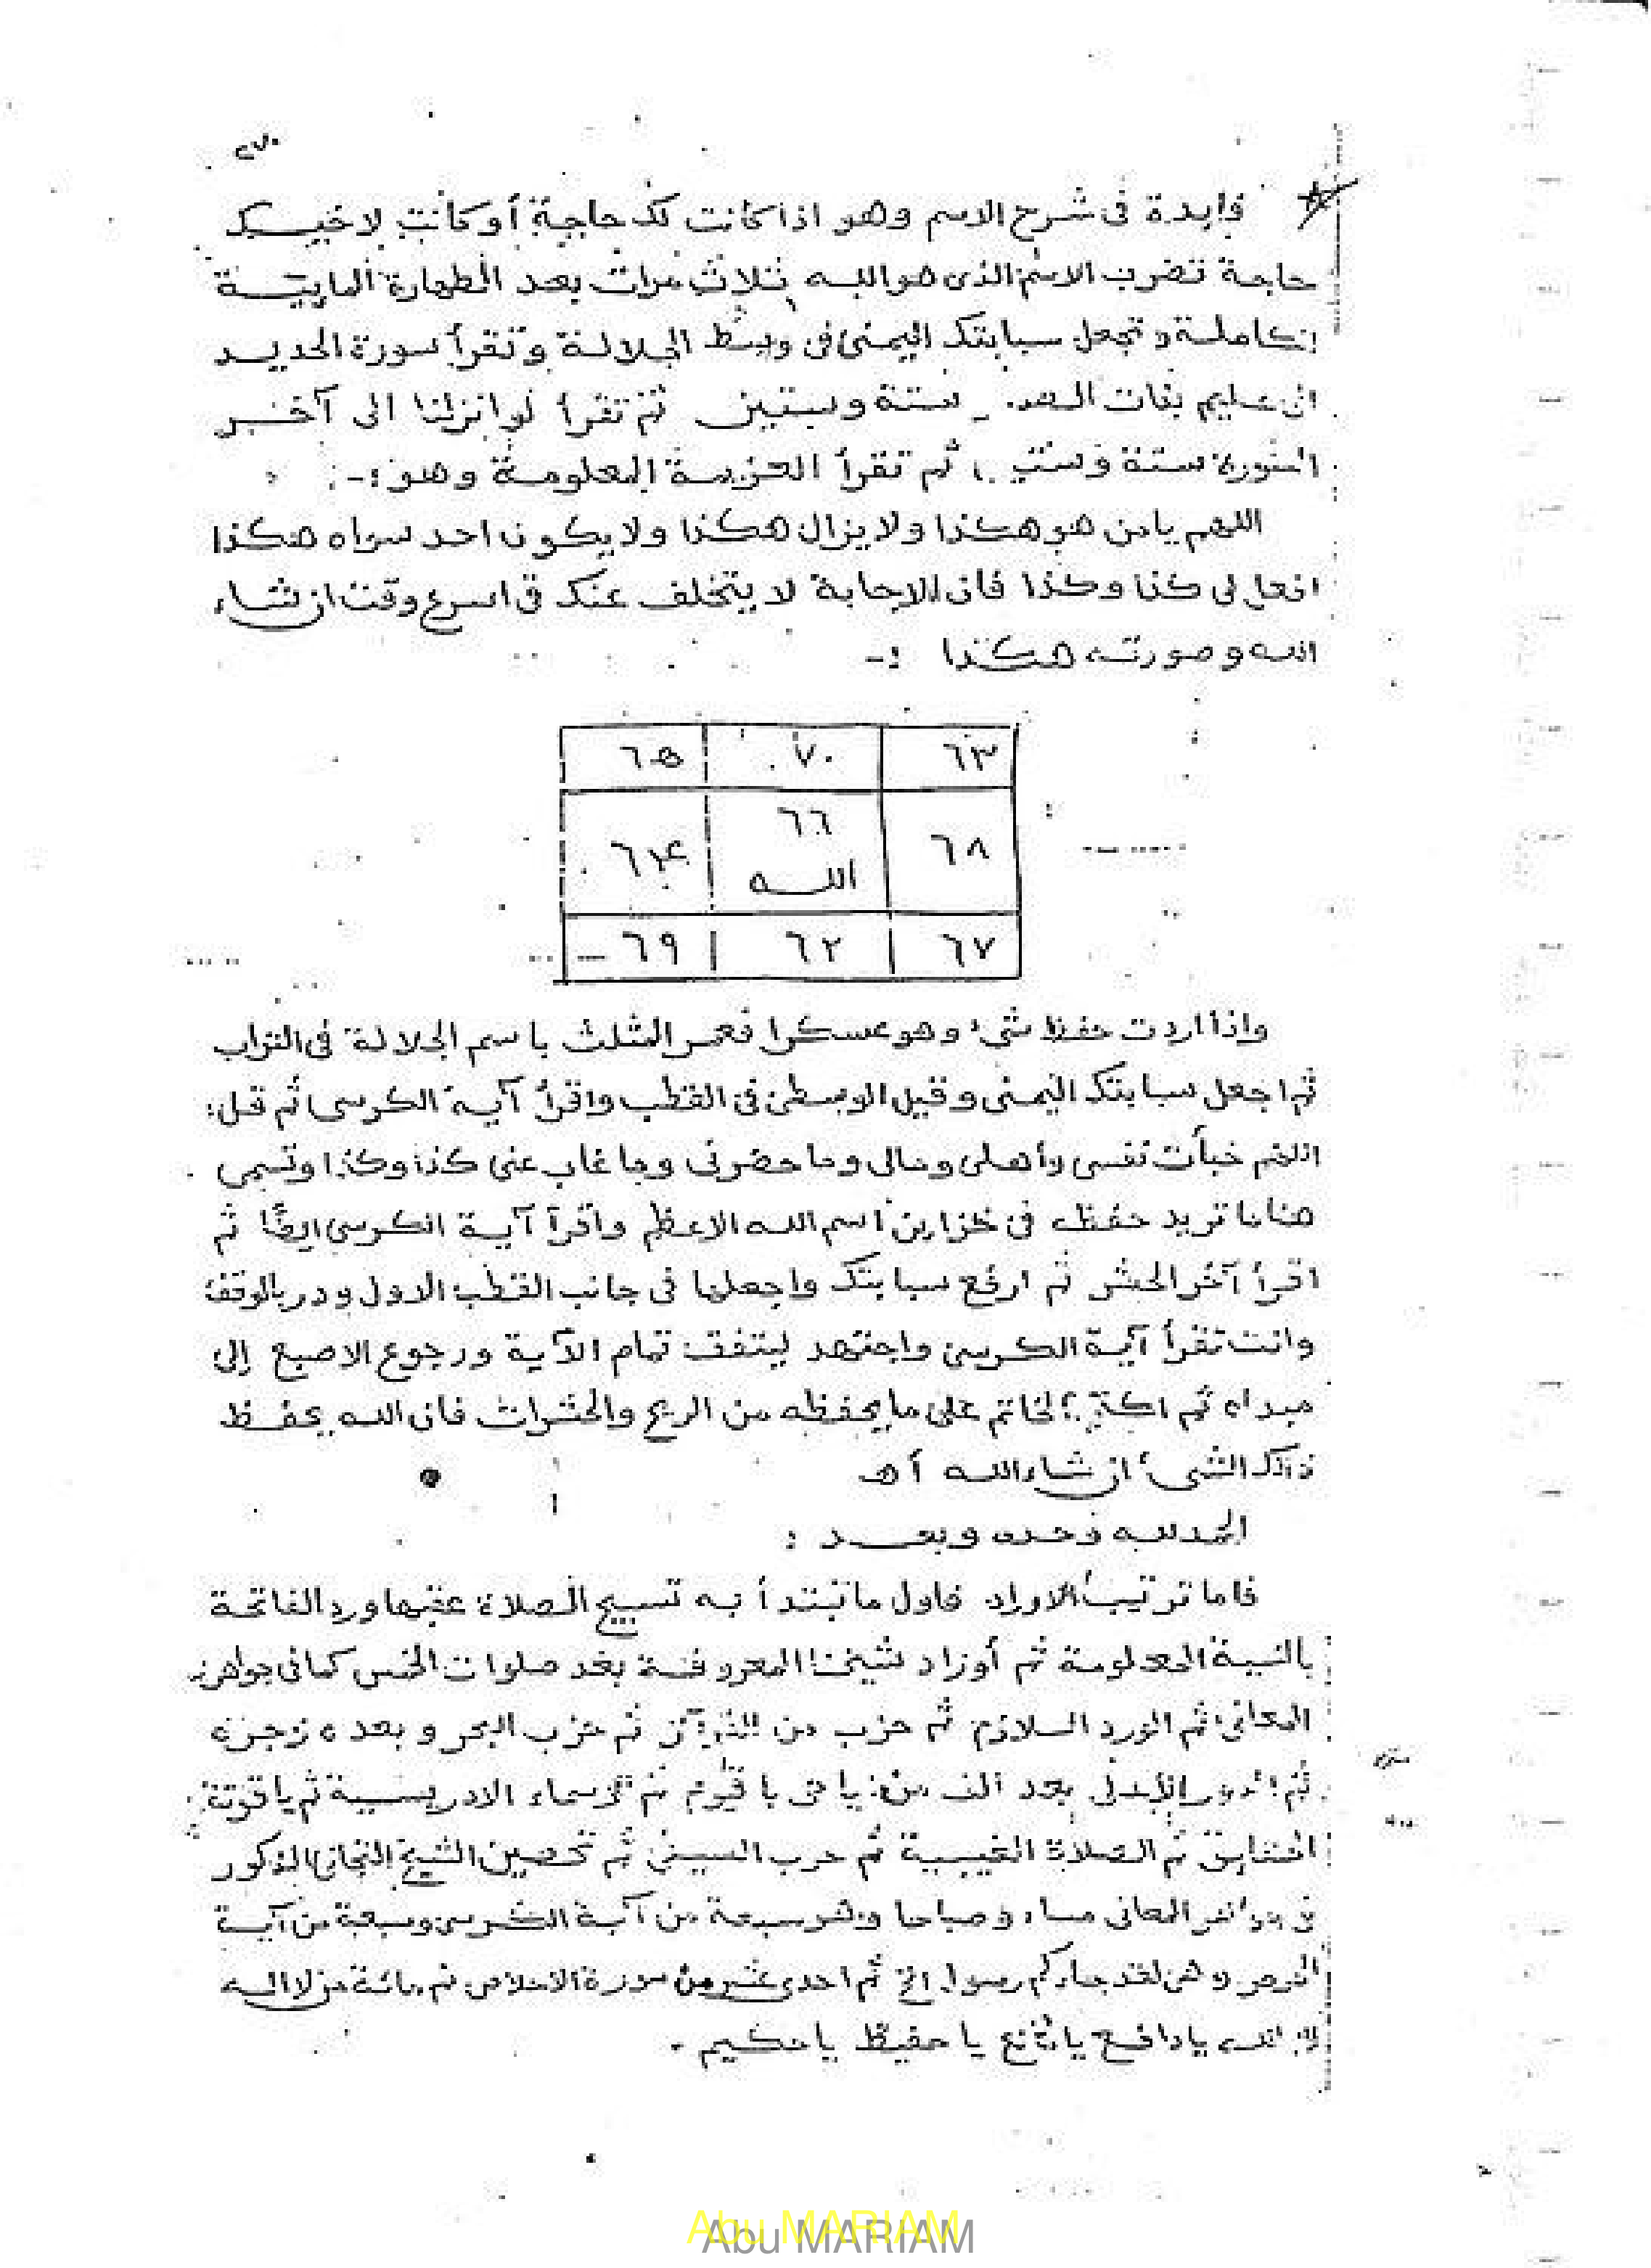 ٢٧٠
فايدة فى شرح الاسم وهو اذا كانت لك حاجة أو كانت لاخيك
حاجة تضرب الاسم الذى هو الله ثلاث مرات بعد الطهارة المايية
الكاملة و تجعل سبابتك اليمنى فى وسط الجلالة وتقرأ سورة الحديد
الى عليم بذات الصدور ستة وستين ثم تقرأ لو انزلنا الى آخر
السورة ستة وستين ثم تقرأ العزيمة المعلومة وهو :-
اللهم يامن هو هكذا ولا يزال هكذا ولا يكون احد سواه هكذا
افعل لى كذا وكذا فان الاجابة لا يتخلف عنك فى اسرع وقت ان شاء
الله وصورته هكذا :-
٦٣ ٧٠ ٦٥
٦٨ ٦٦ الله ٦٤
٦٧ ٦٢ ٦٩
واذا اردت حفظ شىء وهو عسكرا فعمر المثلث باسم الجلالة فى التراب
ثم اجعل سبابتك اليمنى وقيل الوسطى فى القطب واقرأ آية الكرسى ثم قل:
اللهم خبأت نفسى وأهلى ومالى وما حضرنى وما غاب عنى كذا وكذا وتسمى
هنا ما تريد حفظه فى خزاين اسم الله الاعظم واقرأ آية الكرسى ايضًا ثم
اقرأ آخر الحشر ثم ارفع سبابتك واجعلها فى جانب القطب الاول ودر بالوقف
وانت تقرأ آية الكرسى واجتهد ليتفق تمام الآية ورجوع الاصبع إلى
مبداه ثم اكتب الخاتم على ما يحفظه من الريح والحشرات فان الله يحفظ
ذلك الشىء ان شاء الله أهـ
الحمد لله وحده وبعد :
فاما ترتيب الاوراد فاول ما تبتدأ به تسبيح الصلاة عقبها ورد الفاتحة
بالنية المعلومة ثم أوراد شيخنا المعروفة بعد صلوات الخمس كما فى جواهر
المعانى ثم الورد اللازم ثم حزب من القرآن ثم حزب البحر و بعده زجره
ثم الدور الأعلى بعد الف من يا حى يا قيوم ثم الاسماء الادريسية ثم ياقوتة
الحقايق ثم الصلاة الغيبية ثم حزب السيفى ثم تحصين الشيخ التجانى المذكور
فى جواهر المعانى مساء وصباحا وهو سبعة من آية الكرسى وسبعة من آية
الحرص وهى لقد جاءكم رسول الخ ثم احدى عشر من سورة الاخلاص ثم مائة من لا اله
الا الله يا دافع يا مانع يا حفيظ يا حكيم .
Abu MARIAM